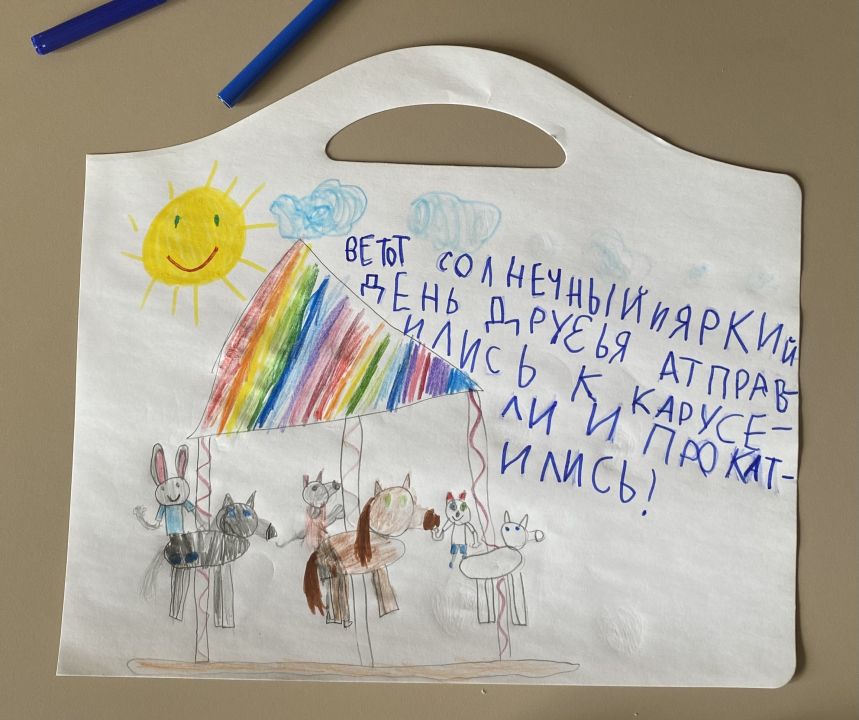 ВЕТОТ СОЛНЕЧНЫЙ и ЯРКИй
ДЕНЬ ДРУЗЬЯ АТПРАВ-
ИЛИСЬ К КАРУСЕ-
ЛИ И ПРОКАТ-
ИЛИСЬ!